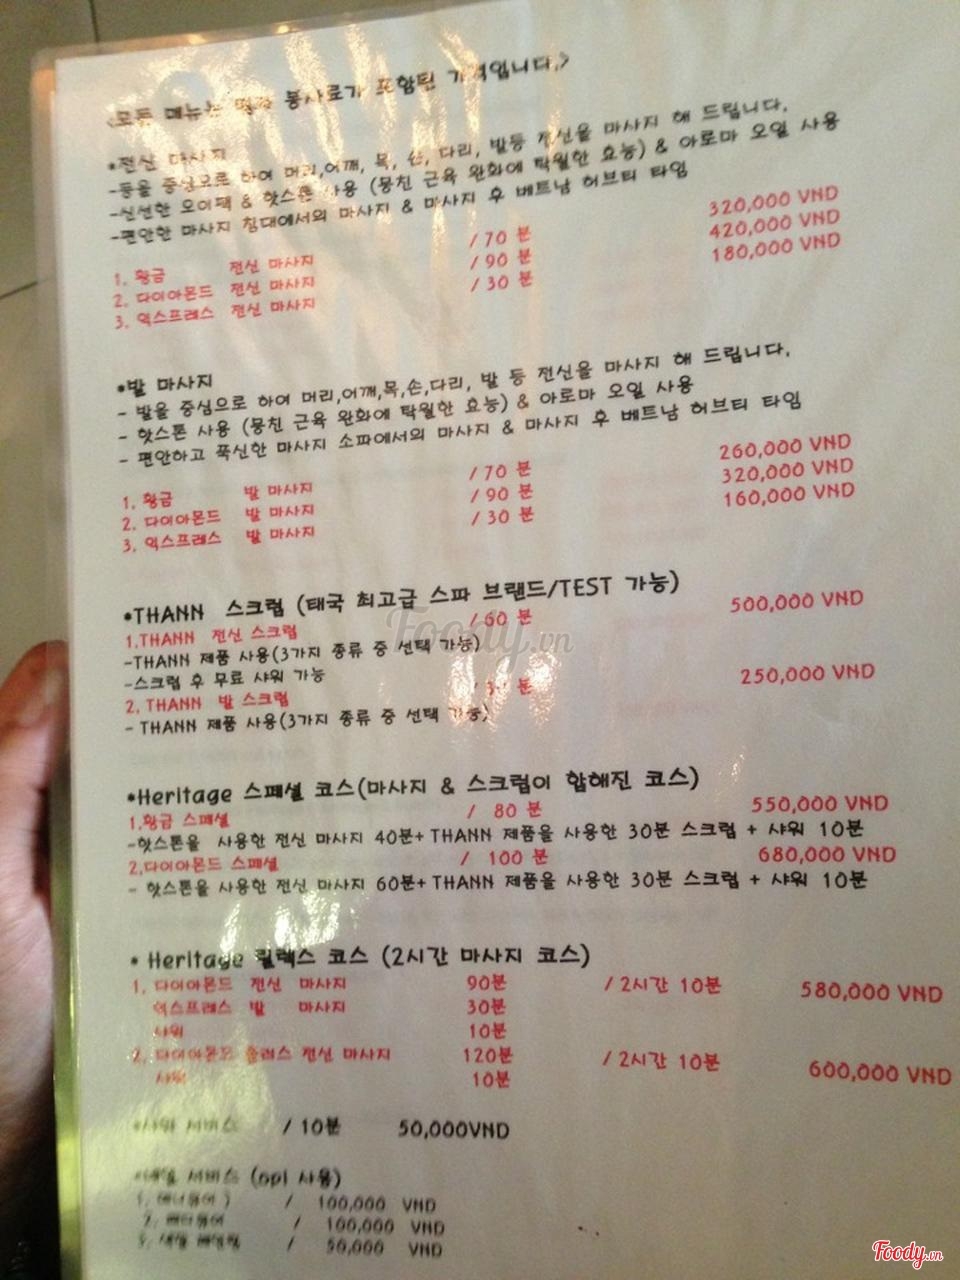 <모든 메뉴는 봉사료가 포함된 가격입니다.>
•전신 마사지
-등을 중심으로 하여 머리,어깨, 목, 손, 다리, 발등 전신을 마사지 해 드립니다.
-신선한 오이팩 & 핫스톤 사용 (뭉친 근육 완화에 탁월한 효능) & 아로마 오일 사용
-편안한 마사지 침대에서의 마사지 & 마사지 후 베트남 허브티 타임
1. 황금 전신 마사지 / 70 분 320,000 VND
2. 다이아몬드 전신 마사지 / 90 분 420,000 VND
3. 익스프레스 전신 마사지 / 30 분 180,000 VND
•발 마사지
- 발을 중심으로 하여 머리,어깨,목,손,다리, 발 등 전신을 마사지 해 드립니다.
- 핫스톤 사용 (뭉친 근육 완화에 탁월한 효능) & 아로마 오일 사용
- 편안하고 푹신한 마사지 소파에서의 마사지 & 마사지 후 베트남 허브티 타임
1. 황금 발 마사지 / 70 분 260,000 VND
2. 다이아몬드 발 마사지 / 90 분 320,000 VND
3. 익스프레스 발 마사지 / 30 분 160,000 VND
•THANN 스크럽 (태국 최고급 스파 브랜드/TEST 가능)
1.THANN 전신 스크럽 / 60 분 500,000 VND
-THANN 제품 사용(3가지 종류 중 선택 가능)
-스크럽 후 무료 샤워 가능
2. THANN 발 스크럽 / 30 분 250,000 VND
- THANN 제품 사용(3가지 종류 중 선택 가능)
•Heritage 스페셜 코스(마사지 & 스크럽이 합해진 코스)
1.황금 스페셜 / 80 분 550,000 VND
-핫스톤을 사용한 전신 마사지 40분+ THANN 제품을 사용한 30분 스크럽 + 샤워 10분
2.다이아몬드 스페셜 / 100 분 680,000 VND
- 핫스톤을 사용한 전신 마사지 60분+ THANN 제품을 사용한 30분 스크럽 + 샤워 10분
• Heritage 릴렉스 코스 (2시간 마사지 코스)
1. 다이아몬드 전신 마사지 90분 / 2시간 10분 580,000 VND
익스프레스 발 마사지 30분
샤워 10분
2. 다이아몬드 플러스 전신 마사지 120분 / 2시간 10분 600,000 VND
샤워 10분
•샤워 서비스 / 10분 50,000VND
•네일 서비스 (opi 사용)
1. / 100,000 VND
2. / 100,000 VND
3. / 50,000 VND
Foody.vn
Foody.vn